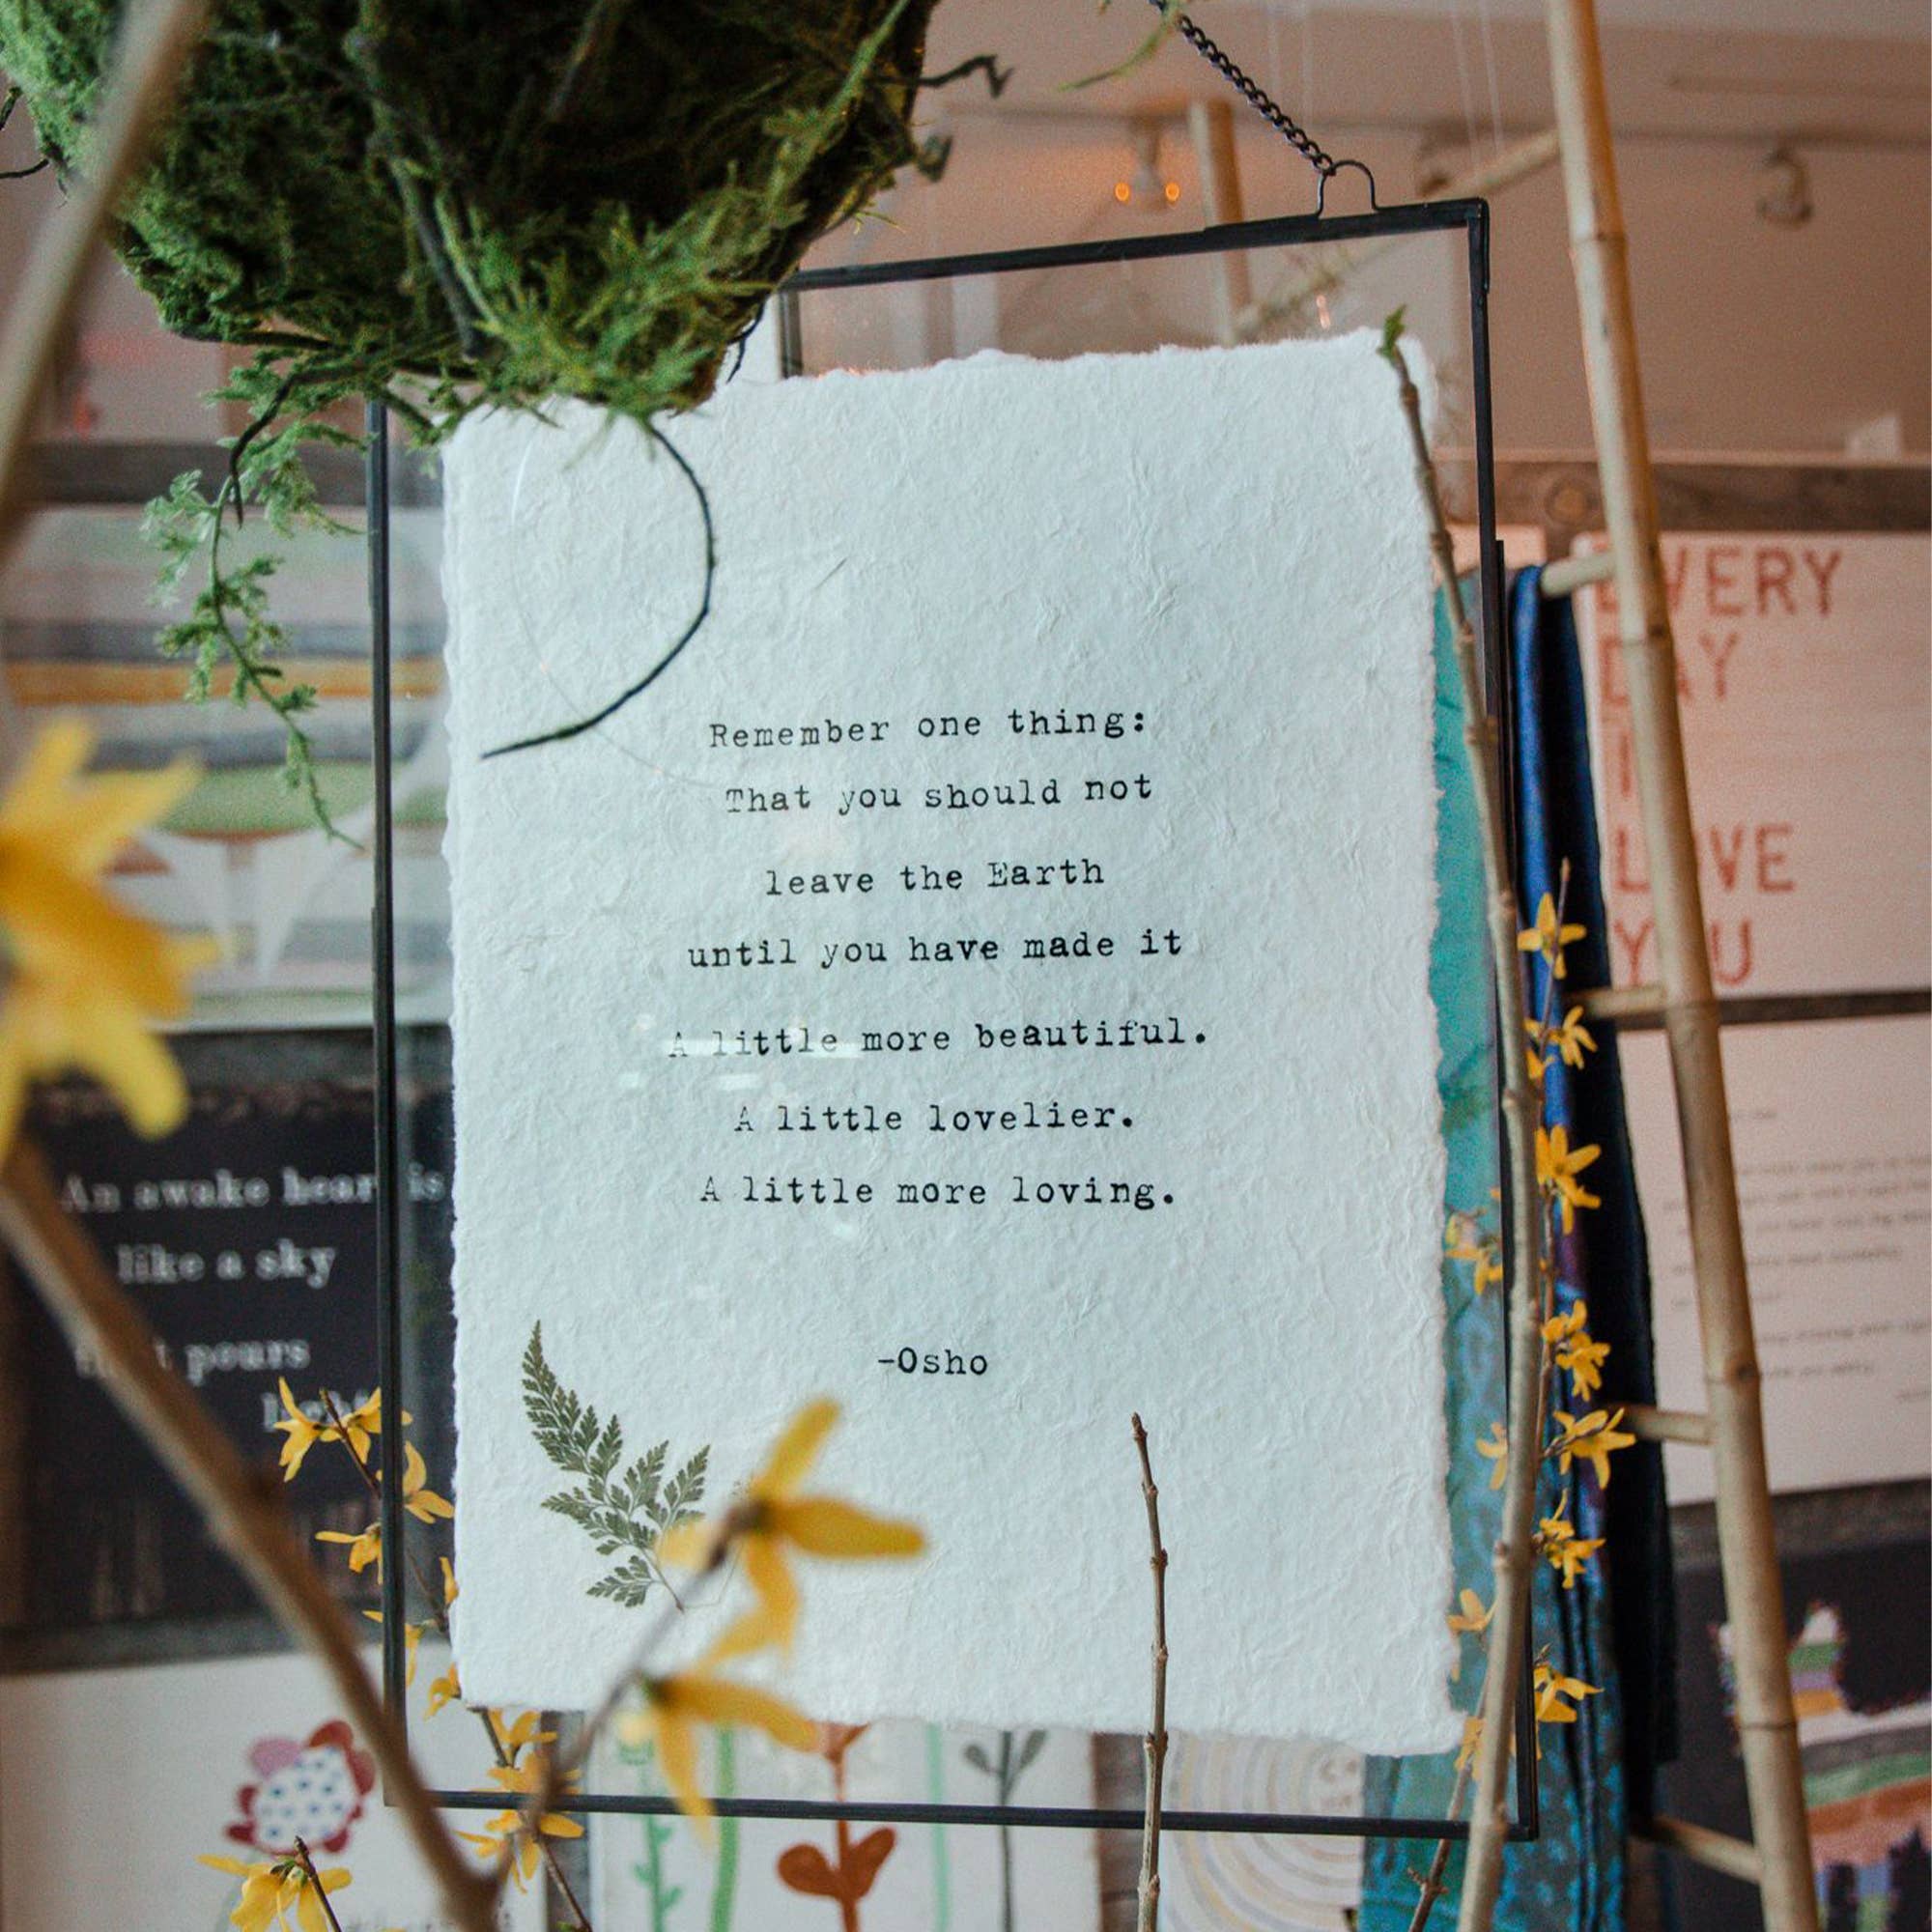 Remember one thing:
That you should not
leave the Earth
until you have made it
A little more beautiful.
A little lovelier.
A little more loving.
-Osho
EVERY
DAY
I
LOVE
YOU
An awake heart is
like a sky
that pours
light